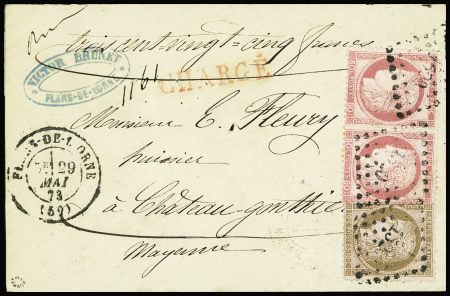 trois cent vingt cinq francs
VICTOR BRUNET
FLERS-DE-L'ORNE
1161
CHARGÉ
Monsieur E. Fleury
huissier
à Château-gonthier
Mayenne
FLERS-DE-L'ORNE
29
MAI
73
(59)